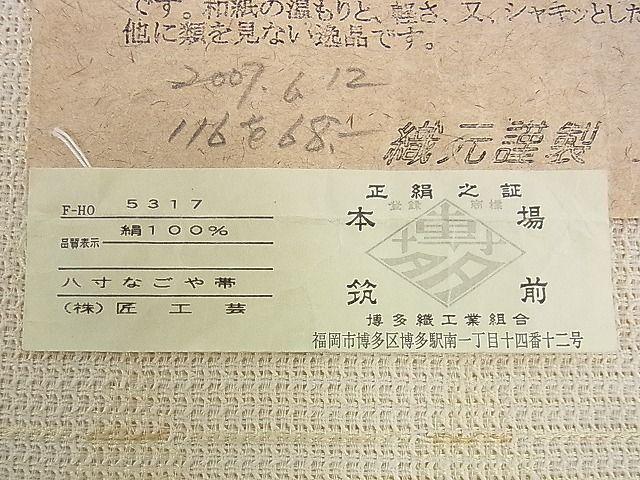 です。和紙の温もりと、軽さ、又、シャキッとした
他に類を見ない逸品です。
2007.6.12
116を68.-
織元謹製
F-HO 5317
絹100%
品質表示
八寸なごや帯
(株)匠工芸
正絹之証
登録 商標
本場
博多
筑前
博多織工業組合
福岡市博多区博多駅南一丁目十四番十二号